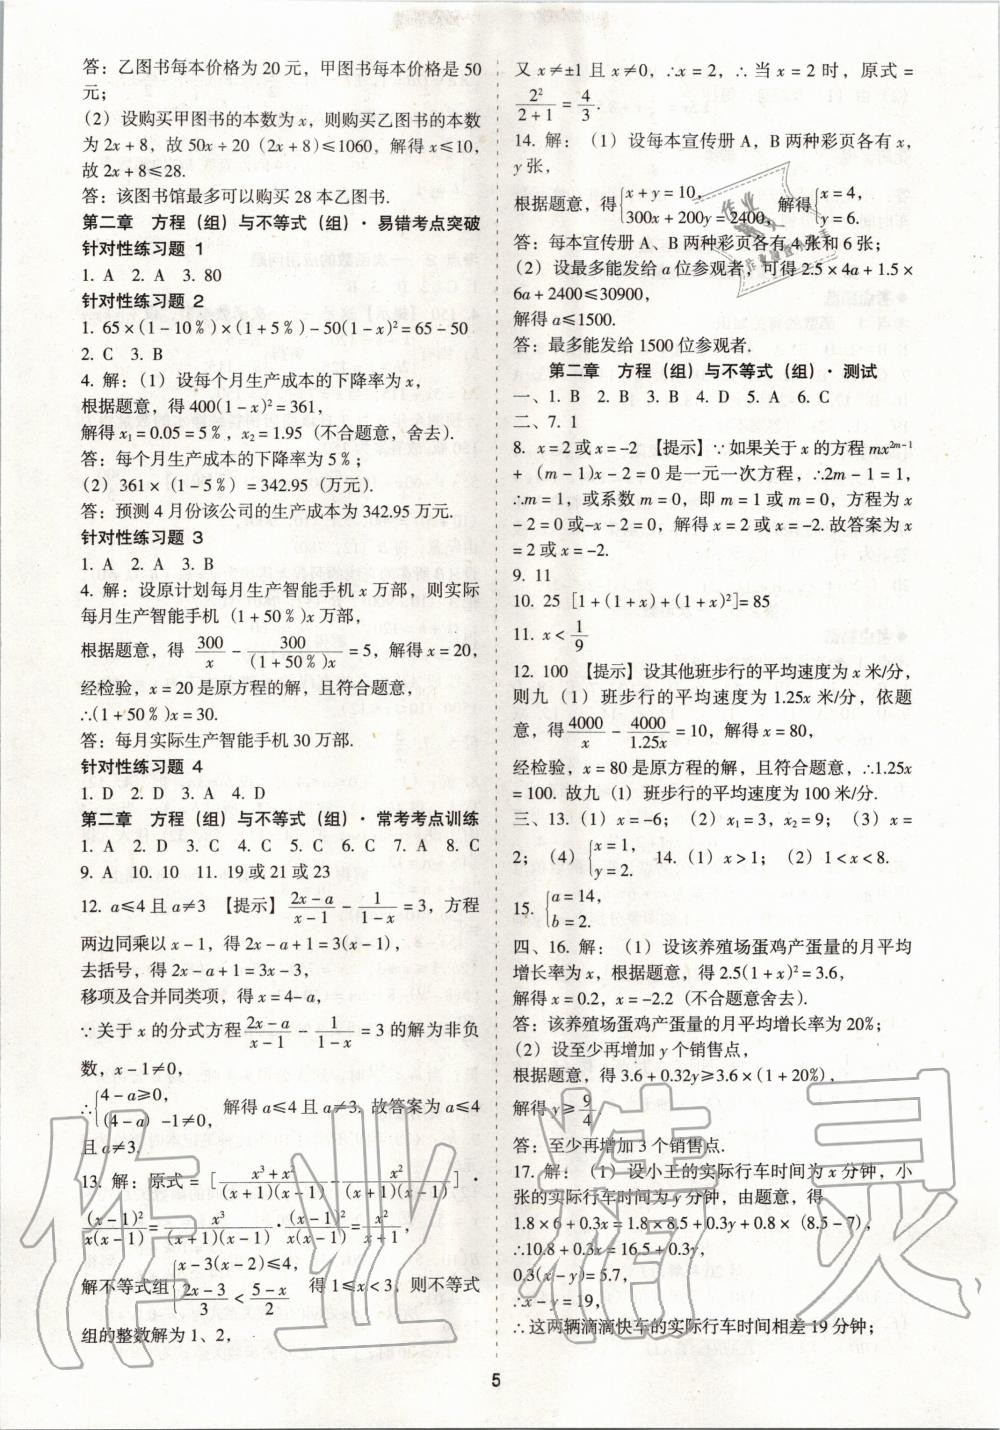 答：乙图书每本价格为 20 元，甲图书每本价格是 50
元；
（2）设购买甲图书的本数为 x，则购买乙图书的本数
为 2x + 8，故 50x + 20（2x + 8）≤1060，解得 x≤10，
故 2x + 8≤28.
答：该图书馆最多可以购买 28 本乙图书.
第二章 方程（组）与不等式（组）· 易错考点突破
针对性练习题 1
1. A 2. A 3. 80
针对性练习题 2
1. 65×(1－10%)×(1＋5%)－50(1－x)²=65－50
2. C 3. B
4. 解：（1）设每个月生产成本的下降率为 x，
根据题意，得 400(1－x)²=361，
解得 x₁=0.05=5%，x₂=1.95（不合题意，舍去）.
答：每个月生产成本的下降率为 5%；
（2）361×（1－5%）=342.95（万元）.
答：预测 4 月份该公司的生产成本为 342.95 万元.
针对性练习题 3
1. A 2. A 3. B
4. 解：设原计划每月生产智能手机 x 万部，则实际
每月生产智能手机（1+50%)x 万部，
根据题意，得 300/x － 300/((1+50%)x) =5，解得 x=20，
经检验，x=20 是原方程的解，且符合题意，
∴(1+50%)x=30.
答：每月实际生产智能手机 30 万部.
针对性练习题 4
1. D 2. D 3. A 4. D
第二章 方程（组）与不等式（组）· 常考考点训练
1. A 2. D 3. C 4. C 5. C 6. C 7. A 8. C
9. A 10. 10 11. 19 或 21 或 23
12. a≤4 且 a≠3 【提示】(2x－a)/(x－1) － 1/(1－x) =3，方程
两边同乘以 x－1，得 2x－a+1=3(x－1)，
去括号，得 2x－a+1=3x－3，
移项及合并同类项，得 x=4－a，
∵关于 x 的分式方程 (2x－a)/(x－1) － 1/(1－x) =3 的解为非负
数，x－1≠0，
∴{4－a≥0，(4－a)－1≠0， 解得 a≤4 且 a≠3. 故答案为 a≤4
且 a≠3.
13. 解：原式=［(x³+x²)/((x+1)(x－1)) － x²/((x+1)(x－1))］·
(x－1)²/(x(x－1)) = x³/((x+1)(x－1)) · (x－1)²/(x(x－1)) = x²/(x+1)，
解不等式组{x－3(x－2)≤4，(2x－3)/3 < (5－x)/2 得 1≤x<3，则不等式
组的整数解为 1、2，
又 x≠±1 且 x≠0，∴x=2，∴ 当 x=2 时，原式=
2²/(2+1) = 4/3.
14. 解：（1）设每本宣传册 A，B 两种彩页各有 x，
y 张，
根据题意，得{x+y=10，300x+200y=2400， 解得{x=4，y=6.
答：每本宣传册 A、B 两种彩页各有 4 张和 6 张；
（2）设最多能发给 a 位参观者，可得 2.5×4a+1.5×
6a+2400≤30900，
解得 a≤1500.
答：最多能发给 1500 位参观者.
第二章 方程（组）与不等式（组）· 测试
一、1. B 2. B 3. B 4. D 5. A 6. C
二、7. 1
8. x=2 或 x=-2 【提示】∵如果关于 x 的方程 mx²ᵐ⁻¹
+（m－1)x－2=0 是一元一次方程，∴2m－1=1，
∴m=1，或系数 m=0，即 m=1 或 m=0，方程为 x
－2=0 或-x－2=0，解得 x=2 或 x=-2. 故答案为 x
=2 或 x=-2.
9. 11
10. 25［1+(1+x)+(1+x)²]=85
11. x< 1/9
12. 100 【提示】设其他班步行的平均速度为 x 米/分，
则九（1）班步行的平均速度为 1.25x 米/分，依题
意，得 4000/x － 4000/1.25x =10，解得 x=80，
经检验，x=80 是原方程的解，且符合题意，∴1.25x
=100. 故九（1）班步行的平均速度为 100 米/分.
三、13.（1）x=-6；（2）x₁=3，x₂=9；（3）x=
2；（4）{x=1，y=2. 14.（1）x>1；（2）1<x<8.
15. {a=14，b=2.
四、16. 解：（1）设该养殖场蛋鸡产蛋量的月平均
增长率为 x，根据题意，得 2.5(1+x)²=3.6，
解得 x=0.2，x=-2.2（不合题意舍去）.
答：该养殖场蛋鸡产蛋量的月平均增长率为 20%；
（2）设至少再增加 y 个销售点，
根据题意，得 3.6+0.32y≥3.6×（1+20%），
解得 y≥ 9/4
答：至少再增加 3 个销售点.
17. 解：（1）设小王的实际行车时间为 x 分钟，小
张的实际行车时间为 y 分钟，由题意，得
1.8×6+0.3x=1.8×8.5+0.3y+0.8×（8.5－7），
∴10.8+0.3x=16.5+0.3y，
0.3(x－y)=5.7，
∴x－y=19，
∴这两辆滴滴快车的实际行车时间相差 19 分钟；
5
作业精灵